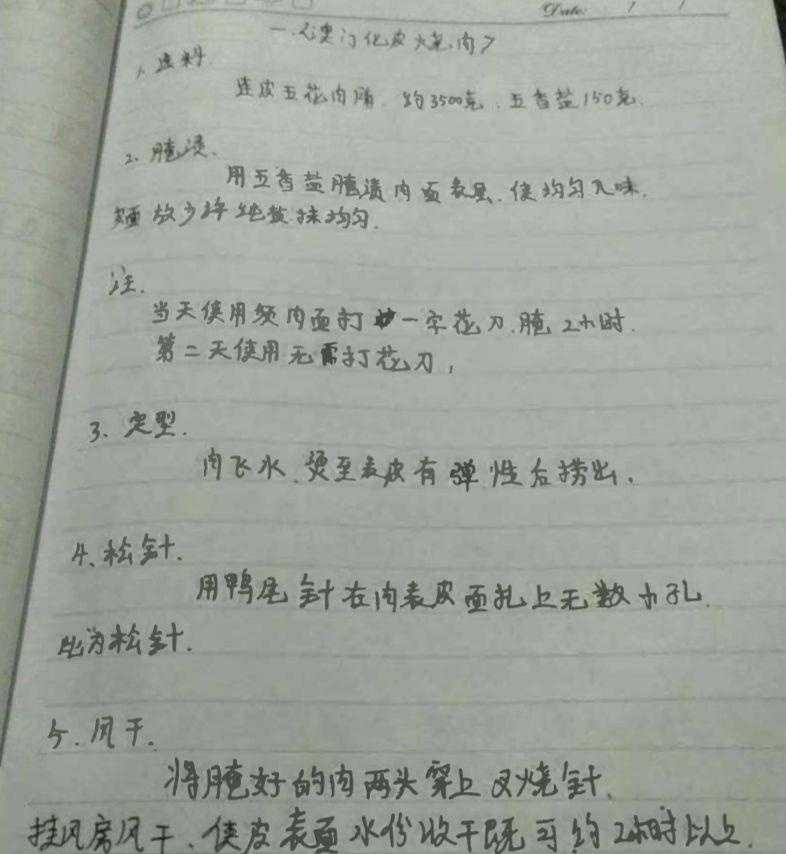 Date: / /
一.《澳门化皮烧肉》
1、选料
连皮五花肉腩.约3500克.五香盐150克.
2.腌渍.
用五香盐腌渍肉面表层.使均匀入味.
放少许 盐抹均匀.
注.
当天使用须肉面打一字花刀.腌2小时.
第二天使用无需打花刀,
3、定型.
肉飞水.烫至表皮有弹性后捞出.
4、松针.
用鸭尾针在肉表皮面扎上无数小孔.
此为松针.
5.风干.
将腌好的肉两头穿上叉烧针.
挂风房风干.使皮表面水份收干既可约2小时以上.